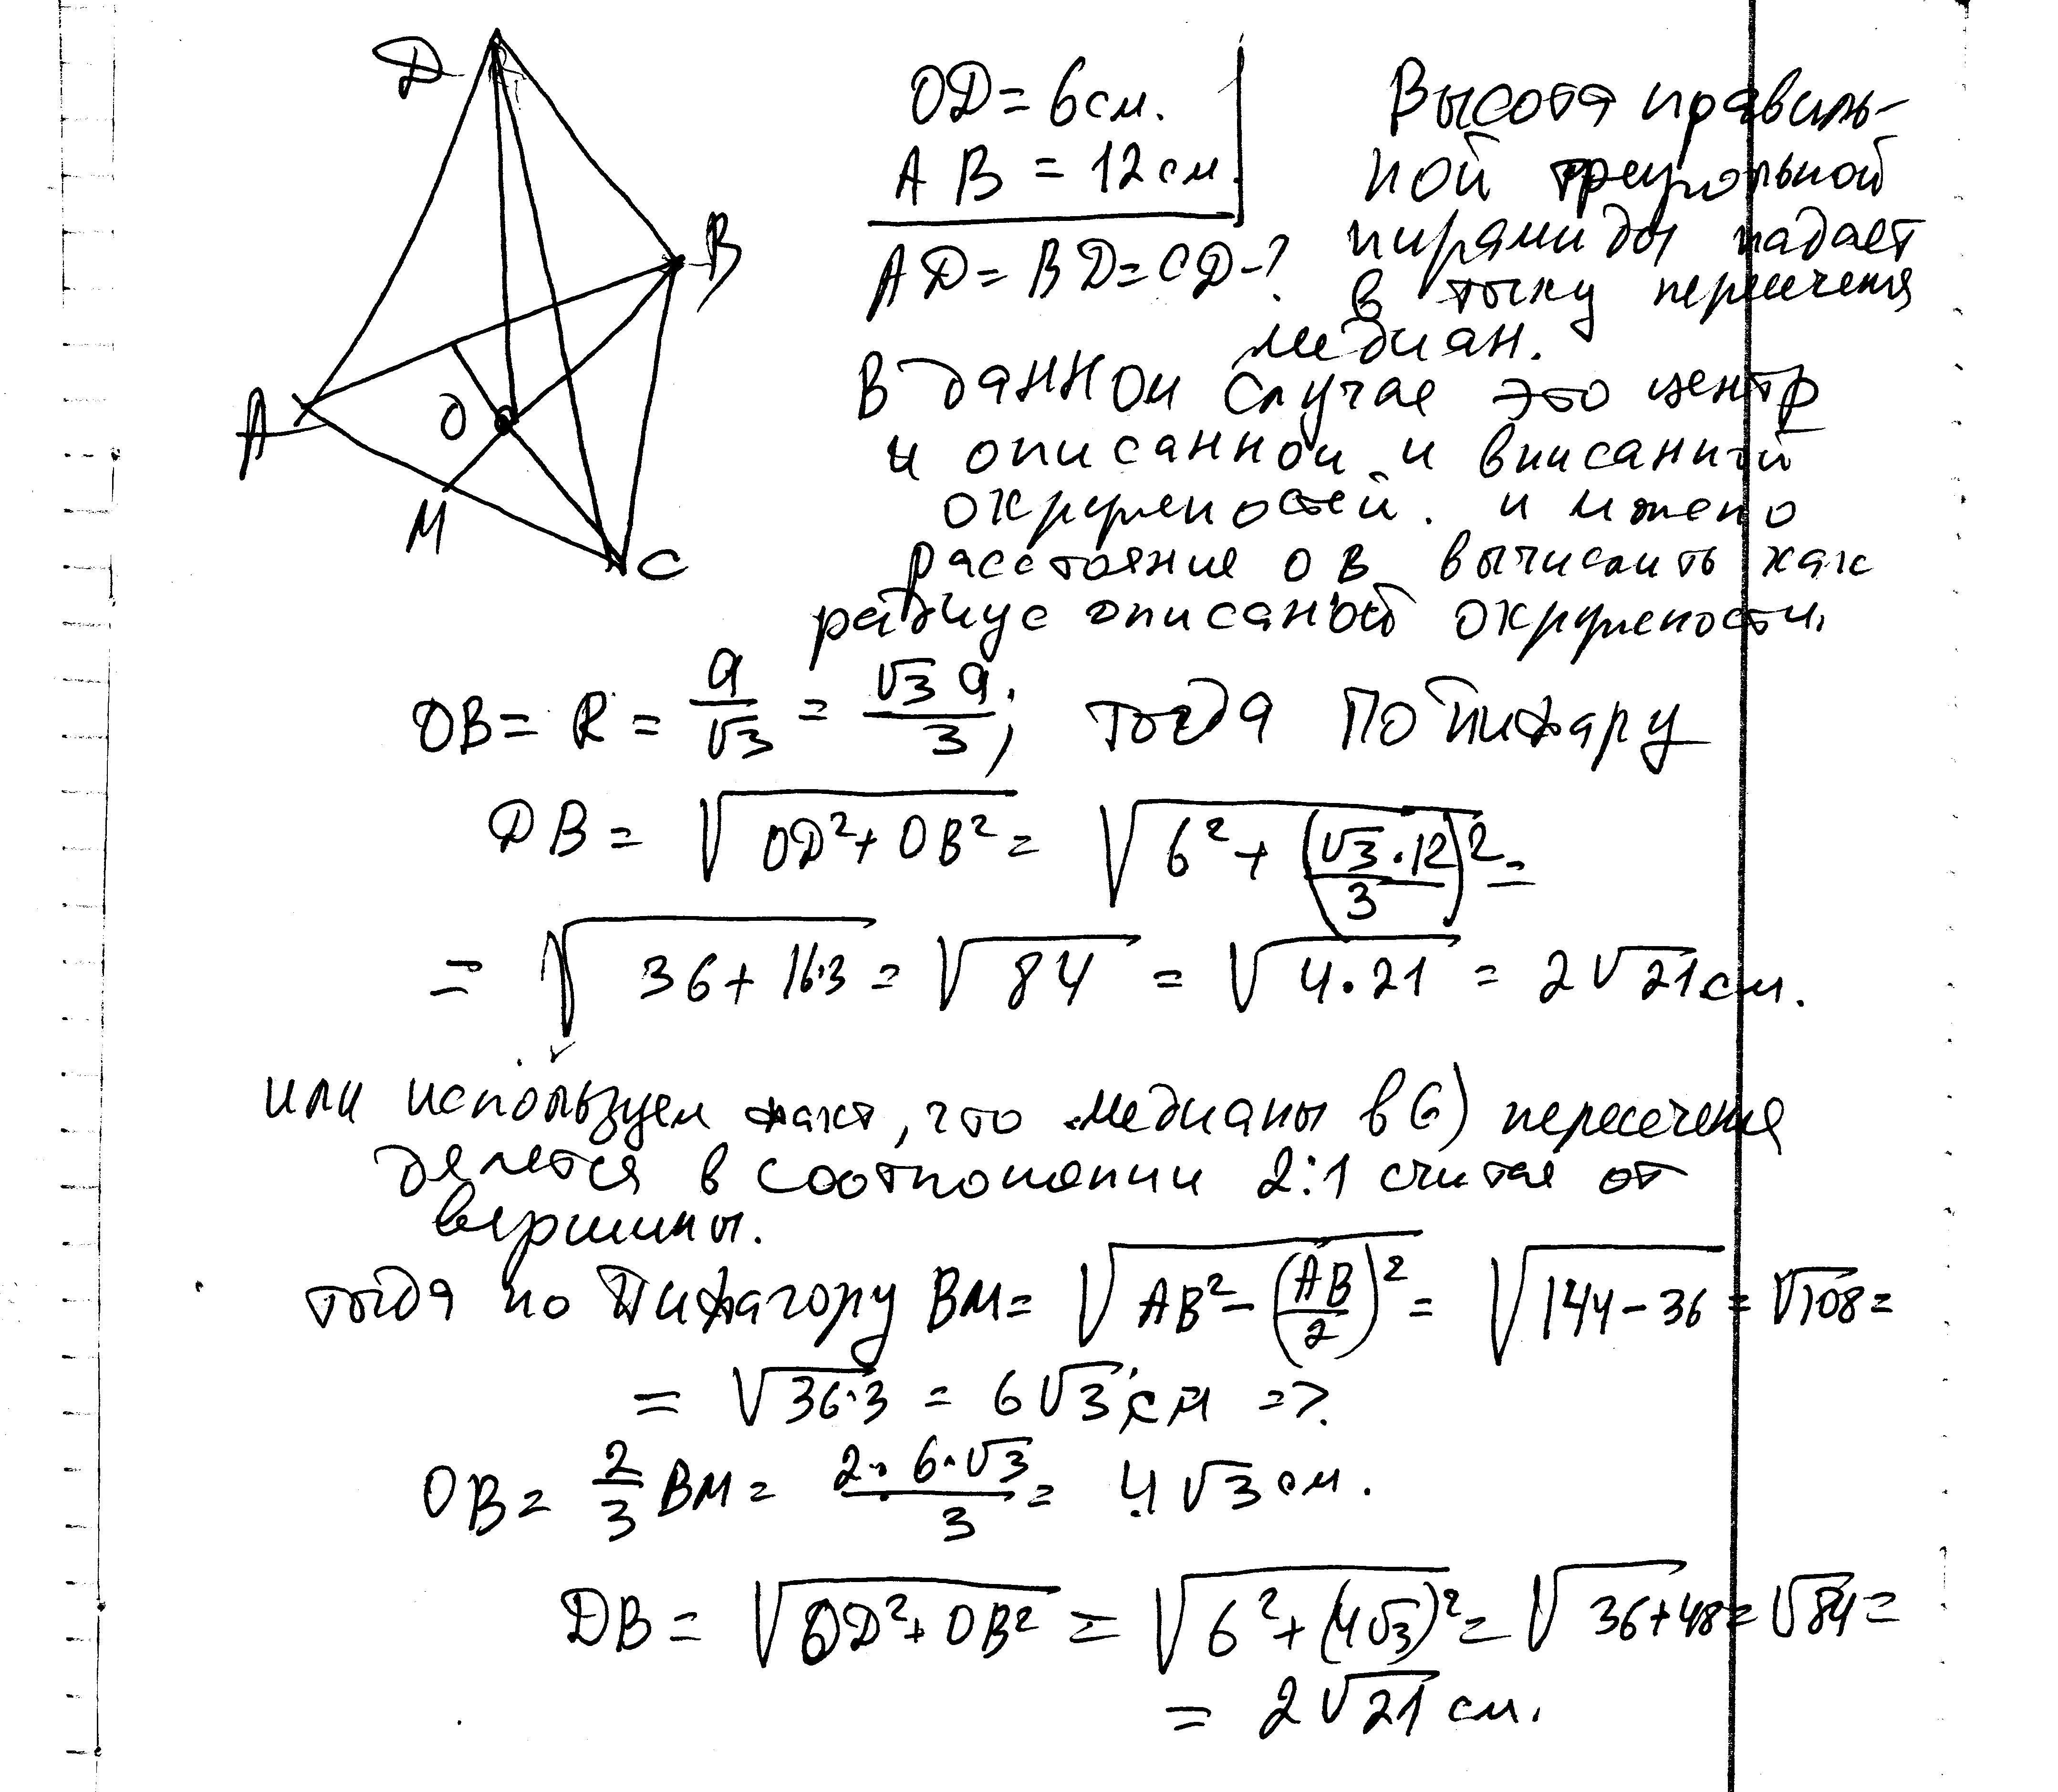 D
B
A
O
M
C
OD = 6 см.
AB = 12 см.
AD = BD = CD - ?
Высота правиль-
ной треугольной
пирамиды падает
в точку пересечения
медиан.
В данном случае это центр
и описанной и вписанной
окружностей. и можно
расстояние ОВ вычислить как
радиус описаной окружности.
OB = R = a/√3 = √3 a/3; тогда по Пифагору
DB = √(OD² + OB²) = √(6² + (√3·12/3)²) =
= √(36 + 16·3) = √84 = √(4·21) = 2√21 см.
или используем факт, что медианы в (·) пересечения
делется в соотношении 2:1 считая от
вершины.
тогда по Пифагору BM = √(AB² - (AB/2)²) = √(144 - 36) = √108 =
= √(36·3) = 6√3 см =>
OB = 2/3 BM = 2·6·√3/3 = 4√3 см.
DB = √(OD² + OB²) = √(6² + (4√3)²) = √(36 + 48) = √84 =
= 2√21 см.